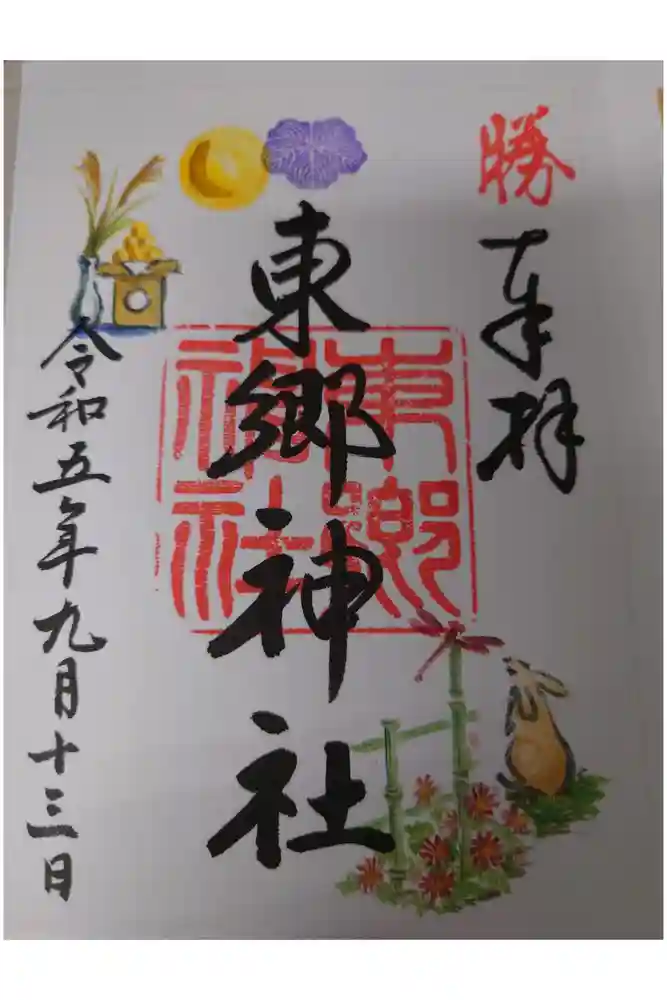 勝
奉拝
東郷神社
東郷神社
令和五年九月十三日